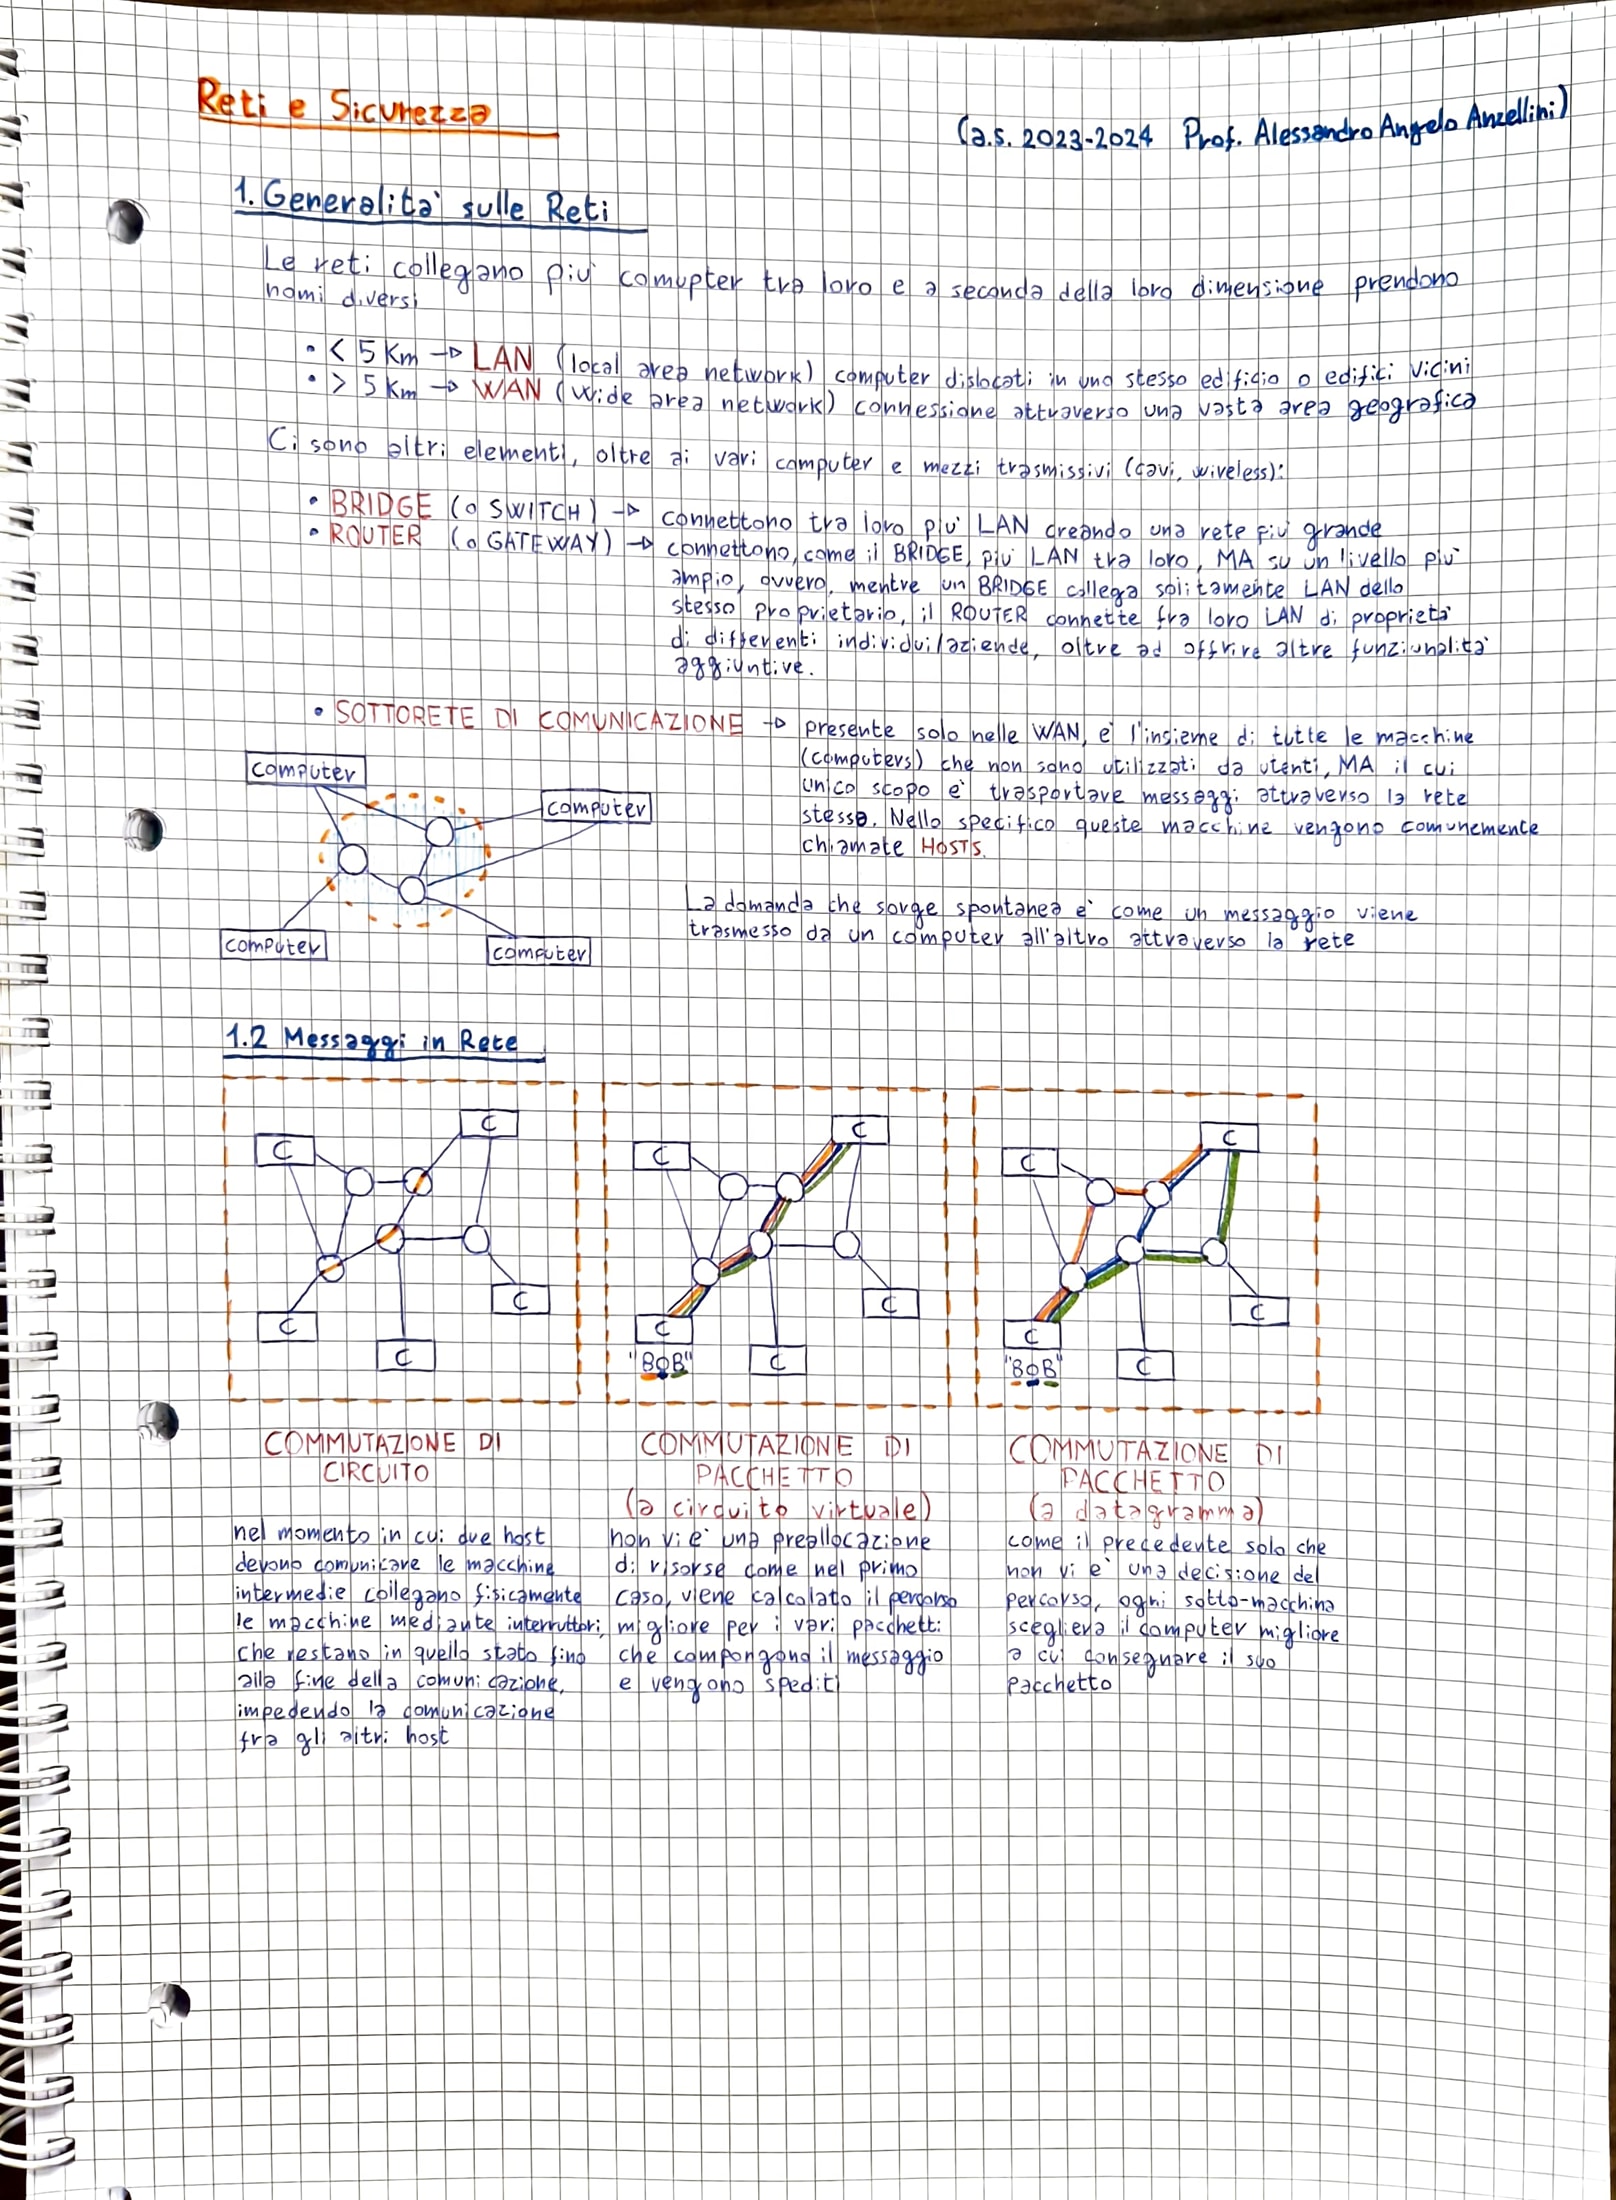 Reti e Sicurezza
(a.s. 2023-2024 Prof. Alessandro Angelo Anzellini)
1. Generalità sulle Reti
Le reti collegano più comupter tra loro e a seconda della loro dimensione prendono
nomi diversi
• < 5 Km → LAN (local area network) computer dislocati in uno stesso edificio o edifici vicini
• > 5 Km → WAN (wide area network) connessione attraverso una vasta area geografica
Ci sono altri elementi, oltre ai vari computer e mezzi trasmissivi (cavi, wireless):
• BRIDGE (o SWITCH) → connettono tra loro più LAN creando una rete più grande
• ROUTER (o GATEWAY) → connettono, come il BRIDGE, più LAN tra loro, MA su un livello più
ampio, ovvero, mentre un BRIDGE collega solitamente LAN dello
stesso proprietario, il ROUTER connette fra loro LAN di proprietà
di differenti individui/aziende, oltre ad offrire altre funzionalità
aggiuntive.
• SOTTORETE DI COMUNICAZIONE → presente solo nelle WAN, è l'insieme di tutte le macchine
(computers) che non sono utilizzati da utenti, MA il cui
unico scopo è trasportare messaggi attraverso la rete
stessa. Nello specifico queste macchine vengono comunemente
chiamate HOSTS.
computer
computer
computer
computer
La domanda che sorge spontanea è come un messaggio viene
trasmesso da un computer all'altro attraverso la rete
1.2 Messaggi in Rete
C
C
C
C
C
C
C
C
C
C
"BOB"
C
C
C
C
C
"BOB"
COMMUTAZIONE DI
CIRCUITO
nel momento in cui due host
devono comunicare le macchine
intermedie collegano fisicamente
le macchine mediante interruttori,
che restano in quello stato fino
alla fine della comunicazione,
impedendo la comunicazione
fra gli altri host
COMMUTAZIONE DI
PACCHETTO
(a circuito virtuale)
non vi è una preallocazione
di risorse come nel primo
caso, viene calcolato il percorso
migliore per i vari pacchetti
che compongono il messaggio
e vengono spediti
COMMUTAZIONE DI
PACCHETTO
(a datagramma)
come il precedente solo che
non vi è una decisione del
percorso, ogni sotto-macchina
sceglierà il computer migliore
a cui consegnare il suo
pacchetto